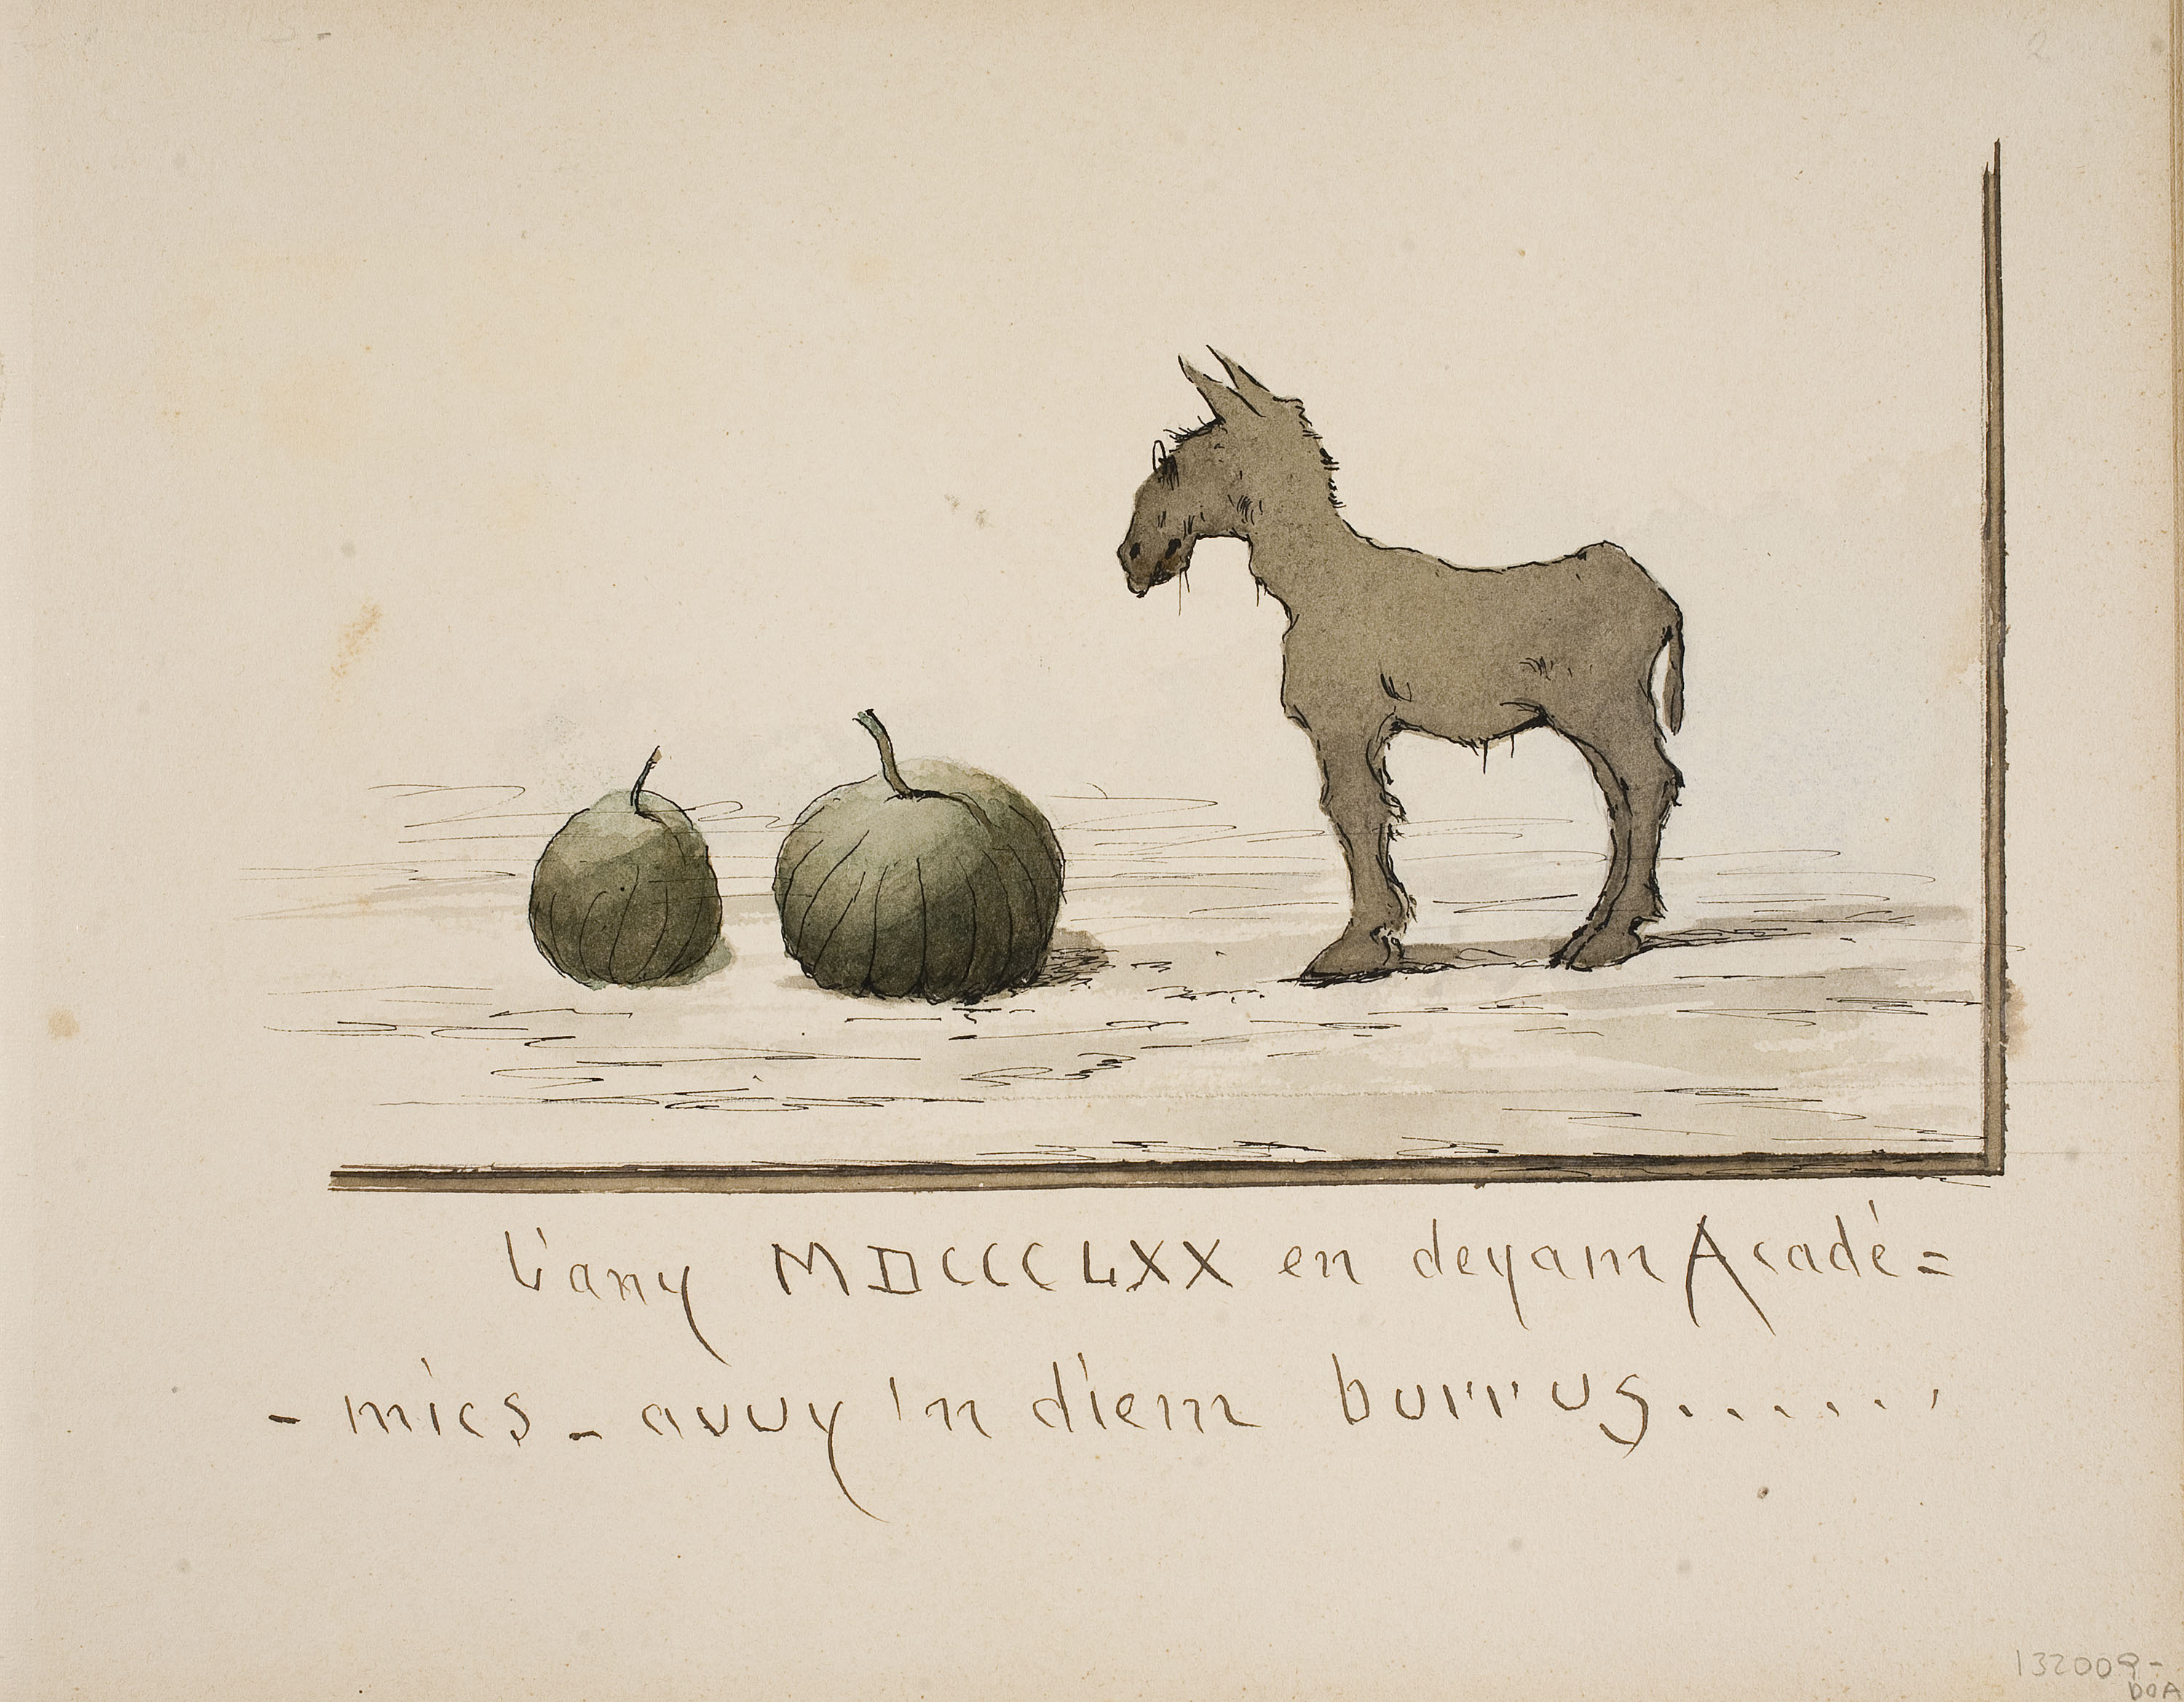 2
L'any MDCCCLXX en deyam Acadé=
-mics - avuy 'n diem burrus......
132009-
DOA